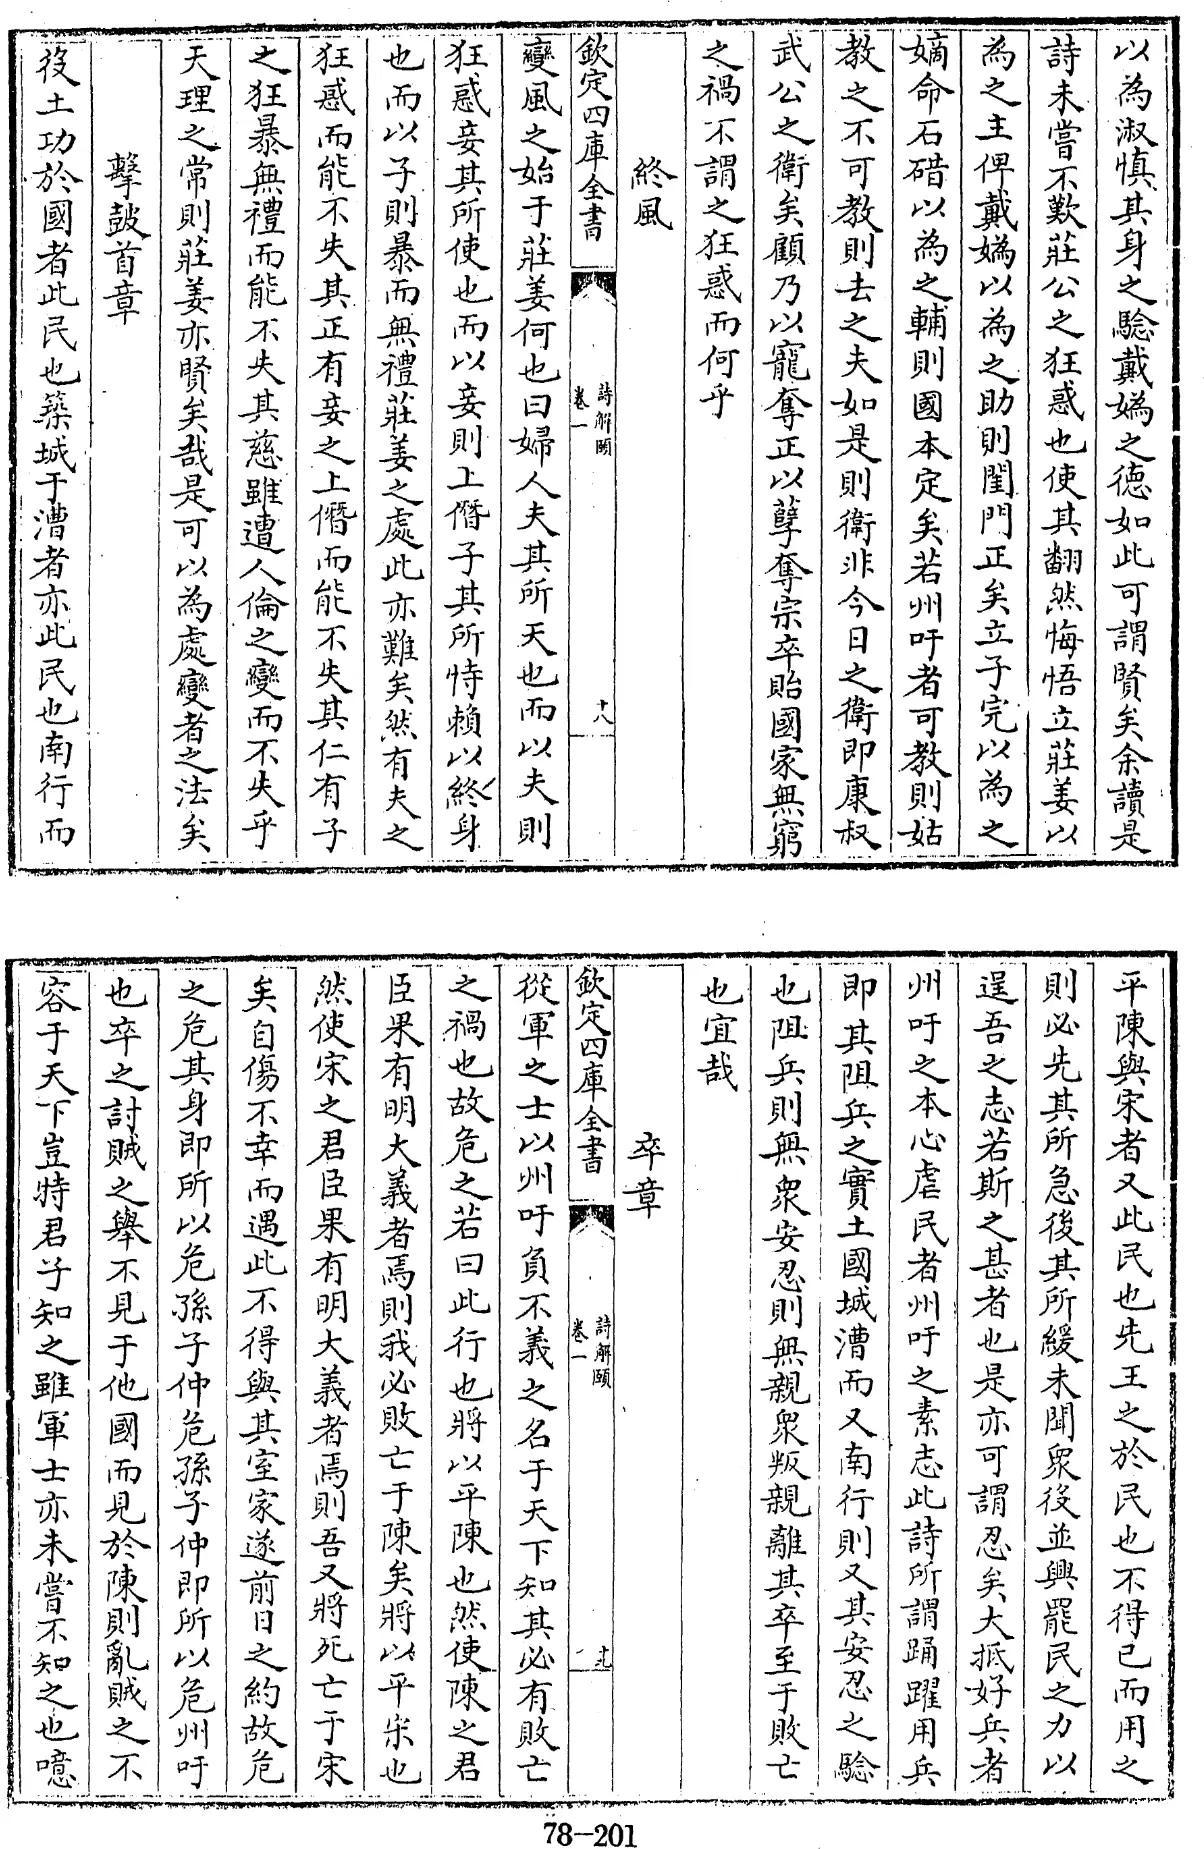 以為淑慎其身之驗戴媯之德如此可謂賢矣余讀是
詩未嘗不歎莊公之狂惑也使其翻然悔悟立莊姜以
為之主俾戴媯以為之助則閨門正矣立子完以為之
嫡命石碏以為之輔則國本定矣若州吁者可教則姑
教之不可教則去之夫如是則衛非今日之衛即康叔
武公之衛矣顧乃以寵奪正以孽奪宗卒貽國家無窮
之禍不謂之狂惑而何乎
終風
欽定四庫全書
詩解頤
卷一
十八
變風之始于莊姜何也曰婦人夫其所天也而以夫則
狂惑妾其所使也而以妾則上僭子其所恃賴以終身
也而以子則暴而無禮莊姜之處此亦難矣然有夫之
狂惑而能不失其正有妾之上僭而能不失其仁有子
之狂暴無禮而能不失其慈雖遭人倫之變而不失乎
天理之常則莊姜亦賢矣哉是可以為處變者之法矣
擊鼓首章
役土功於國者此民也築城于漕者亦此民也南行而
平陳與宋者又此民也先王之於民也不得已而用之
則必先其所急後其所緩未聞衆役並興罷民之力以
逞吾之志若斯之甚者也是亦可謂忍矣大抵好兵者
州吁之本心虐民者州吁之素志此詩所謂踊躍用兵
即其阻兵之實土國城漕而又南行則又其安忍之驗
也阻兵則無衆安忍則無親衆叛親離其卒至于敗亡
也宜哉
卒章
欽定四庫全書
詩解頤
卷一
十九
從軍之士以州吁負不義之名于天下知其必有敗亡
之禍也故危之若曰此行也將以平陳也然使陳之君
臣果有明大義者焉則我必敗亡于陳矣將以平宋也
然使宋之君臣果有明大義者焉則吾又將死亡于宋
矣自傷不幸而遇此不得與其室家遂前日之約故危
之危其身即所以危孫子仲危孫子仲即所以危州吁
也卒之討賊之舉不見于他國而見於陳則亂賊之不
容于天下豈特君子知之雖軍士亦未嘗不知之也噫
78-201